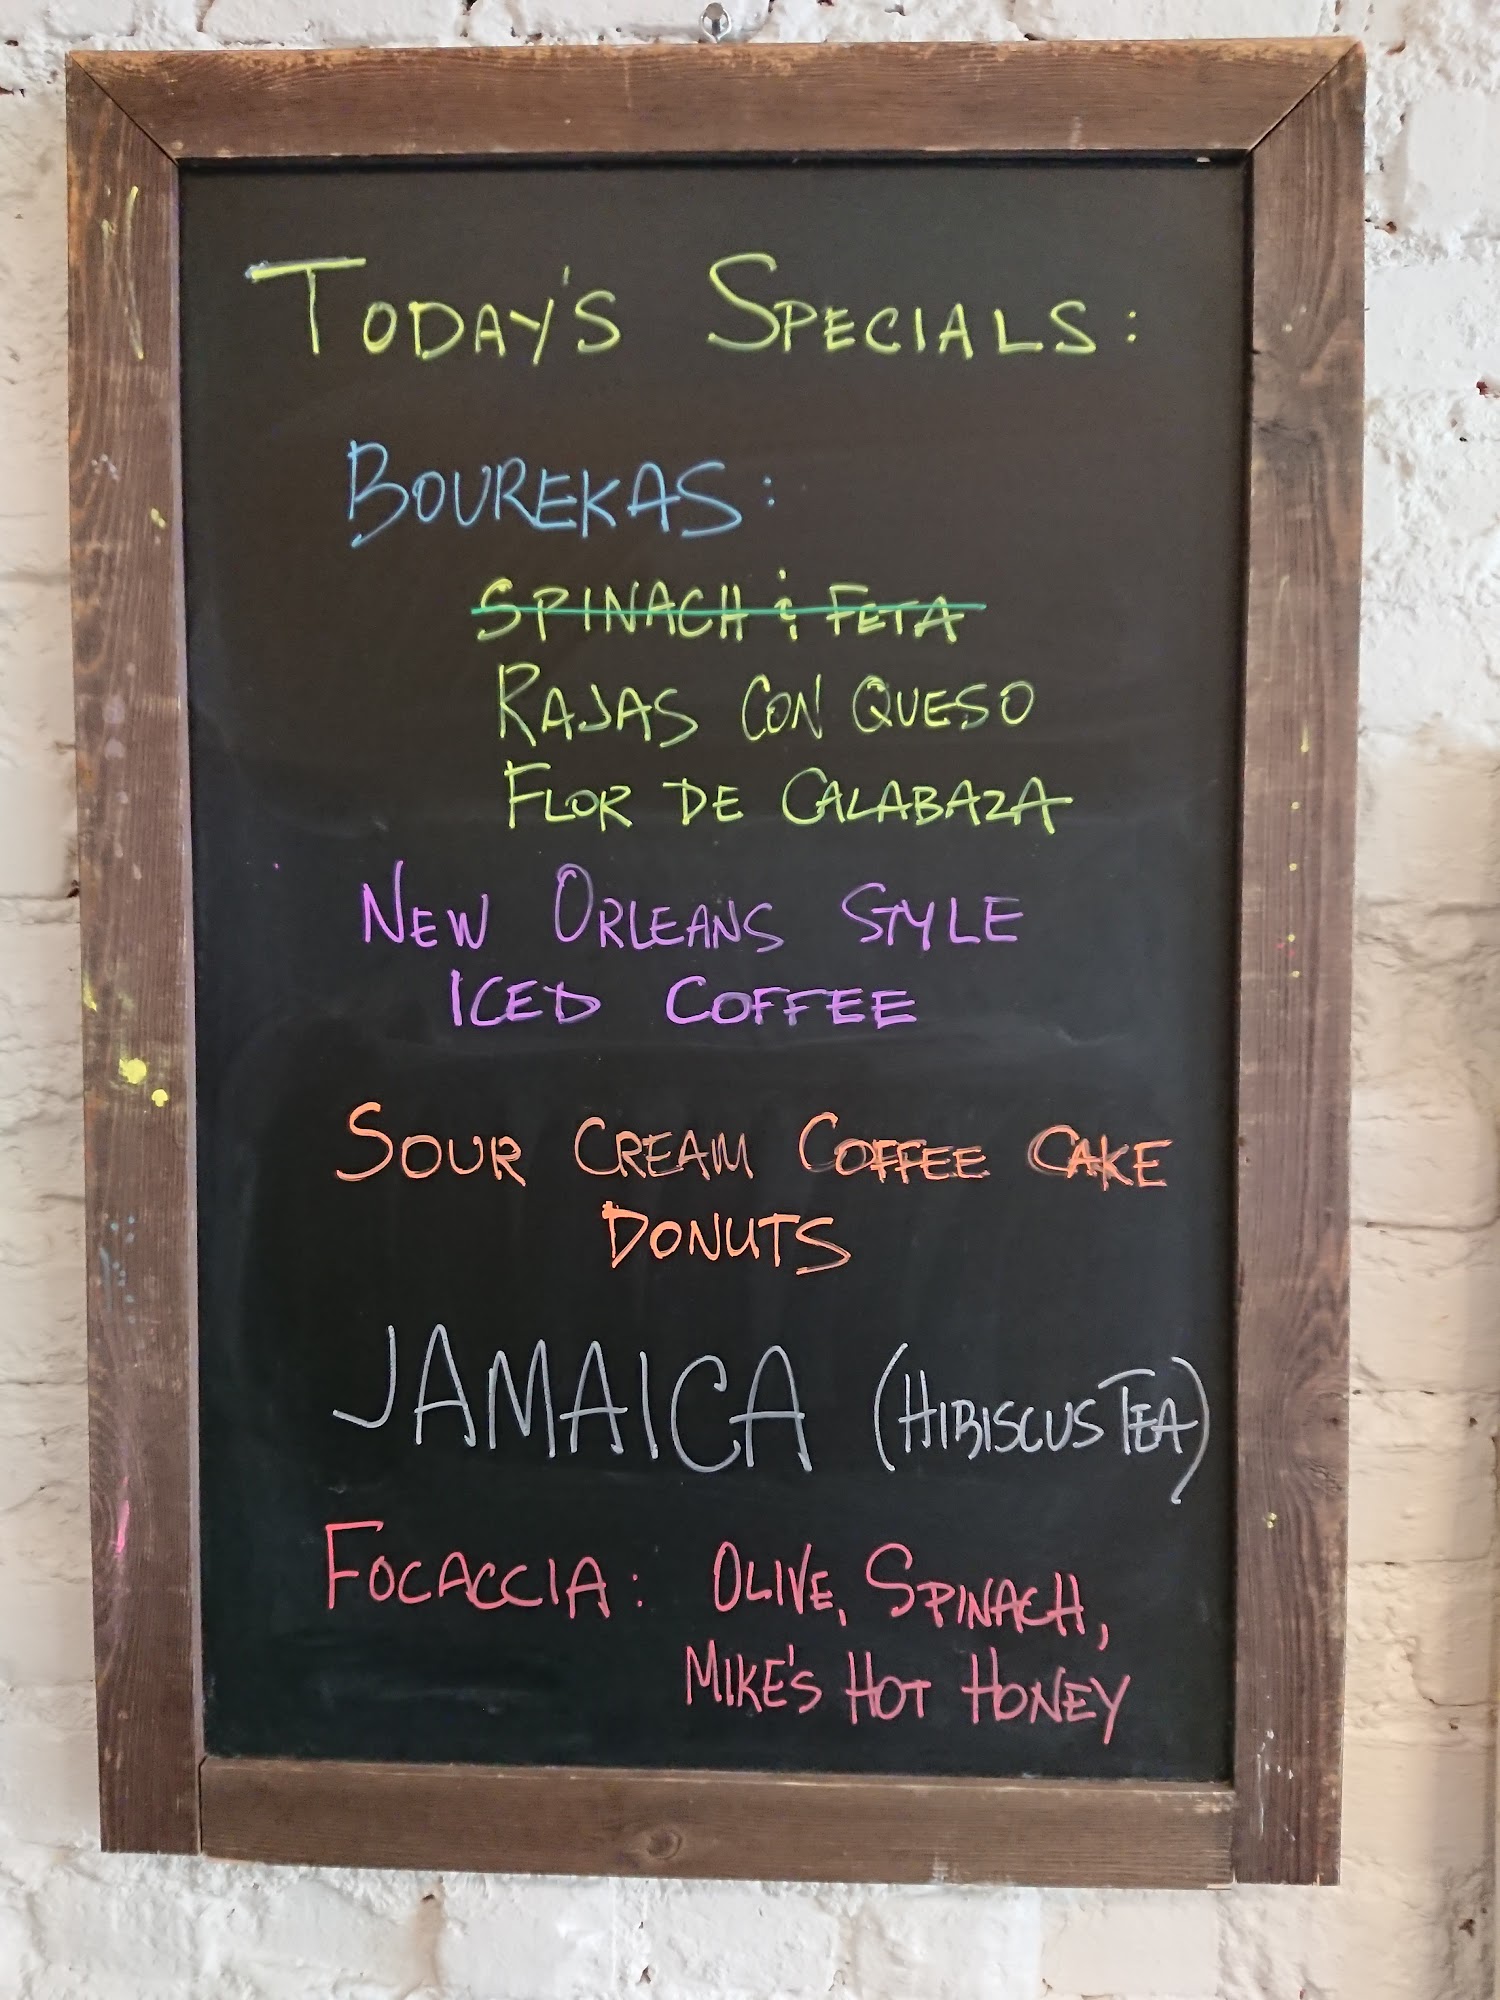 TODAY'S SPECIALS:
BOUREKAS:
SPINACH & FETA
RAJAS CON QUESO
FLOR DE CALABAZA
NEW ORLEANS STYLE
ICED COFFEE
SOUR CREAM COFFEE CAKE
DONUTS
JAMAICA (HIBISCUS TEA)
FOCACCIA: OLIVE, SPINACH,
MIKE'S HOT HONEY